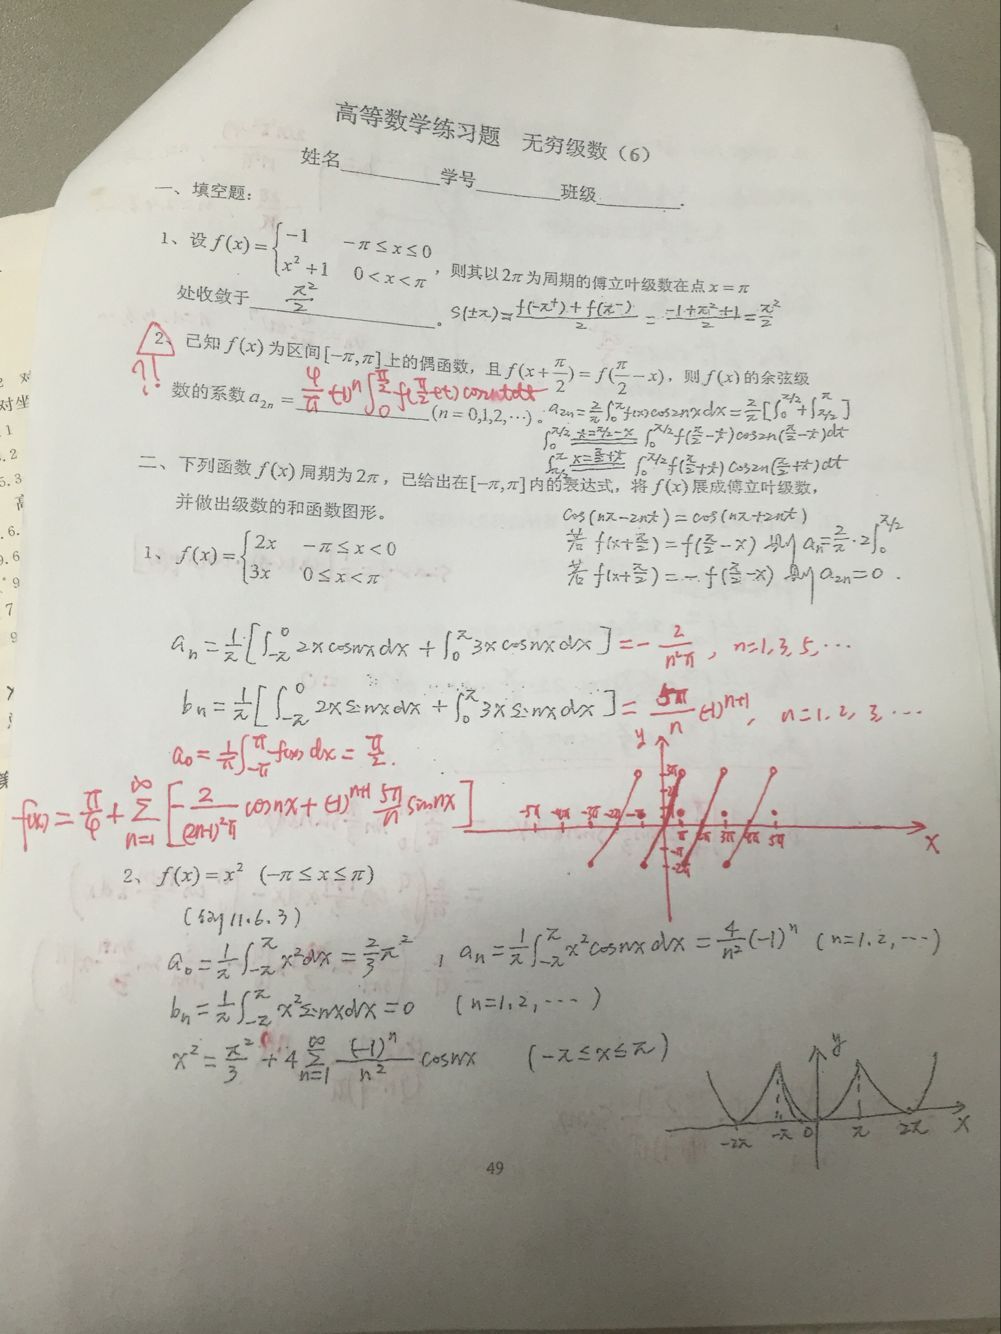 高等数学练习题 无穷级数（6）
姓名________学号________班级________.
一、填空题:
1、设 f(x)={ -1  -π≤x≤0
x²+1  0<x<π ，则其以2π为周期的傅立叶级数在点 x=π
处收敛于 π²/2 。 S(±π)= (f(-π⁺)+f(π⁻))/2 = (-1+π²+1)/2 = π²/2
2、已知 f(x) 为区间[-π,π]上的偶函数，且 f(x+π/2)=f(π/2-x)，则 f(x) 的余弦级
数的系数 a₂ₙ = 4/π (-1)ⁿ ∫₀^(π/2) f(π/2+t) cos2ntdt (n=0,1,2,⋯)。
a₂ₙ = 2/π ∫₀^π f(x)cos2nxdx = 2/π [∫₀^(π/2) + ∫_(π/2)^π]
∫₀^(π/2) x=π/2-x ∫₀^(π/2) f(π/2-t)cos2n(π/2-t)dt
∫_(π/2)^π x=π/2+t ∫₀^(π/2) f(π/2+t)cos2n(π/2+t)dt
二、下列函数 f(x) 周期为2π，已给出在[-π,π]内的表达式，将 f(x) 展成傅立叶级数，
并做出级数的和函数图形。
cos(nπ-2nt)=cos(nπ+2nt)
若 f(x+π/2)=f(π/2-x) 则 aₙ= 2/π·2∫₀^(π/2)
若 f(x+π/2)=-f(π/2-x) 则 a₂ₙ=0.
1、f(x)={ 2x  -π≤x<0
3x  0≤x<π
aₙ = 1/π [∫₋π⁰ 2xcosnxdx + ∫₀^π 3xcosnxdx] = - 2/(n²π), n=1,3,5,⋯
bₙ = 1/π [∫₋π⁰ 2xsinnxdx + ∫₀^π 3xsinnxdx] = 5π/n (-1)ⁿ⁺¹, n=1,2,3,⋯
a₀ = 1/π ∫₋π^π f(x)dx = π/2.
f(x) = π/4 + Σₙ₌₁^∞ [- 2/((2n-1)²π) cosnx + (-1)ⁿ⁺¹ 5π/n sinnx]
y
3π
2π
-5π -4π -3π -2π -π π 2π 3π 4π 5π
x
-π
-2π
2、f(x)=x² (-π≤x≤π)
(例11.6.3)
a₀ = 1/π ∫₋π^π x²dx = 2/3 π², aₙ = 1/π ∫₋π^π x²cosnxdx = 4/n² (-1)ⁿ (n=1,2,⋯)
bₙ = 1/π ∫₋π^π x²sinnxdx = 0 (n=1,2,⋯)
x² = π²/3 + 4 Σₙ₌₁^∞ (-1)ⁿ/n² cosnx (-π≤x≤π)
y
-2π -π 0 π 2π x
49